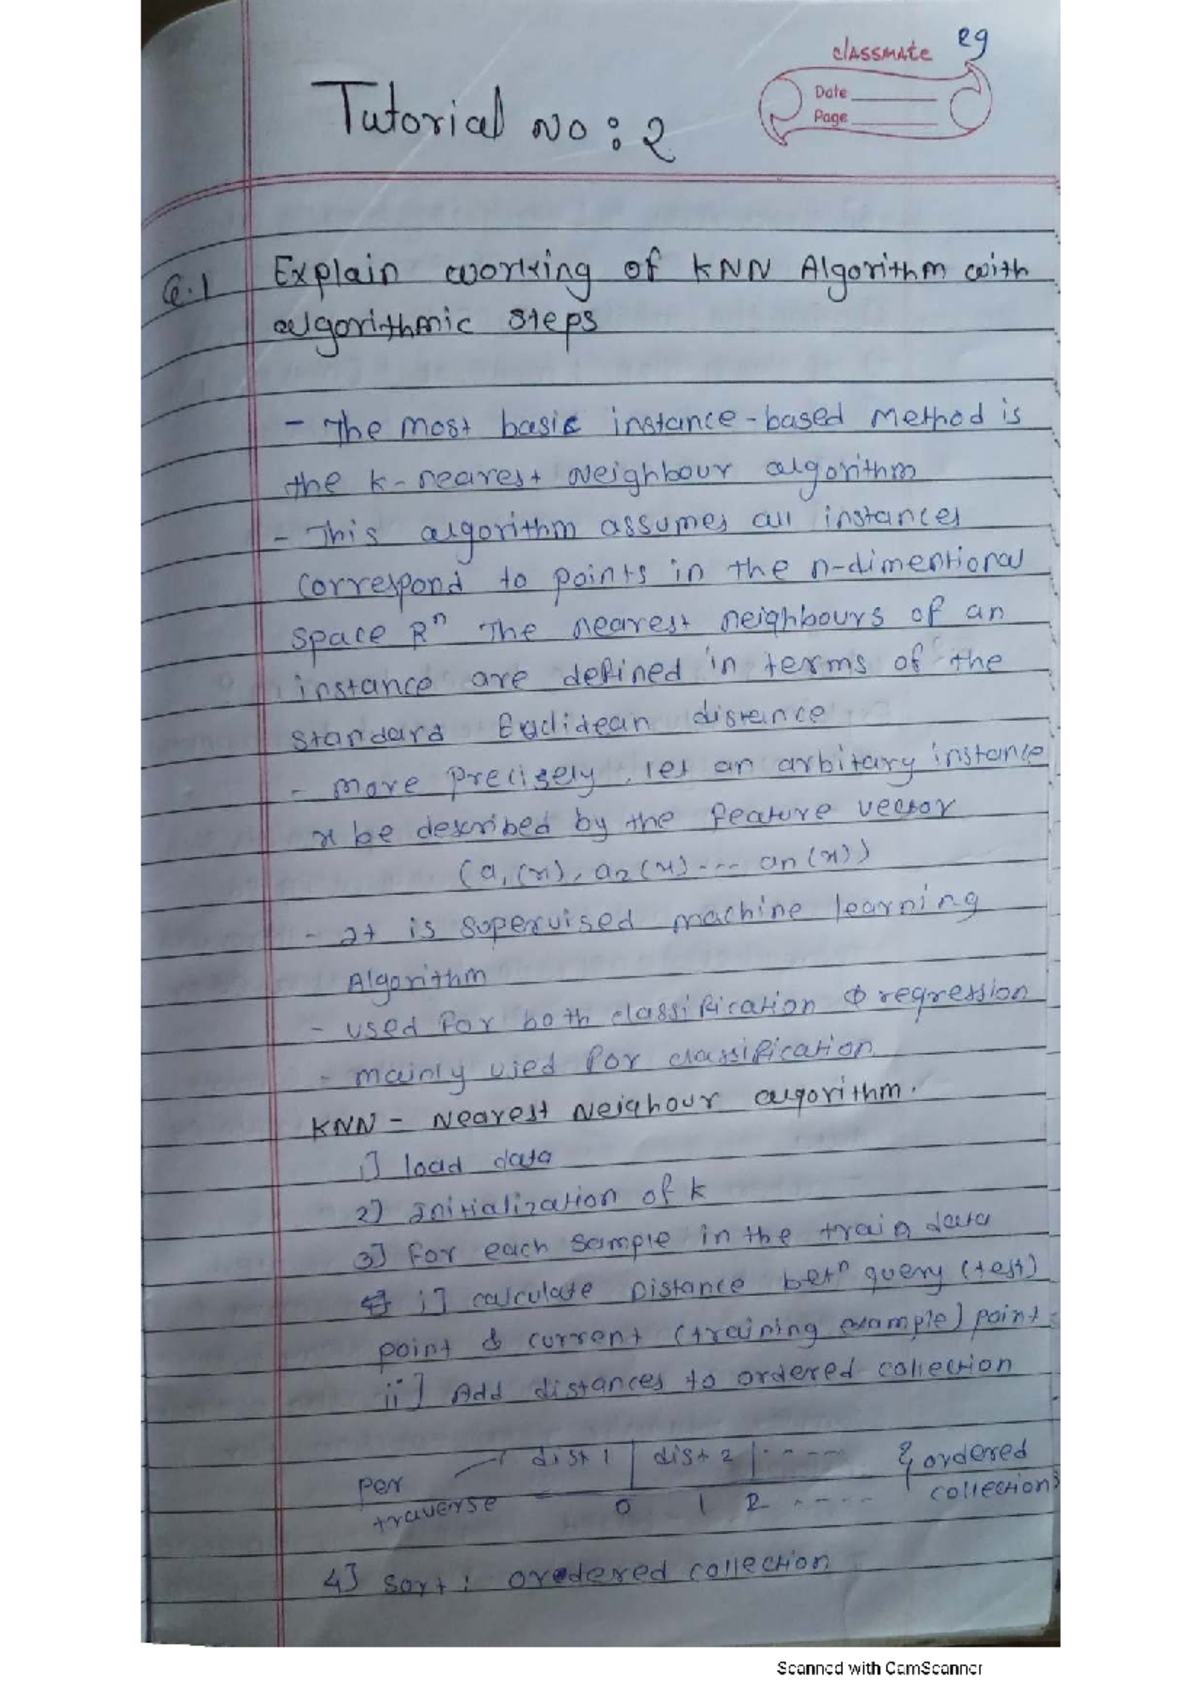 29
classmate
Date
Page
Tutorial No : 2
Q.1 Explain working of KNN Algorithm with
algorithmic steps
- The most basic instance-based Method is
the k-nearest Neighbour algorithm
- This algorithm assumes all instances
correspond to points in the n-dimentional
space Rⁿ The nearest neighbours of an
instance are defined in terms of the
standard Euclidean distance
- more precisely, let an arbitary instance
x be described by the feature vector
(a₁(x), a₂(x) ---- an(x))
- It is supervised machine learning
Algorithm
- used for both classification & regression
- mainly used for classification
KNN - Nearest Neighour algorithm.
1] load data
2] Initialization of k
3] For each sample in the train data
i] calculate Distance betⁿ query (test)
point & current (training example) point
ii] Add distances to ordered collection
dist 1 | dist 2 | ----- } ordered
per collection
traverse 0 1 2 ----
4] sort : ordered collection
Scanned with CamScanner